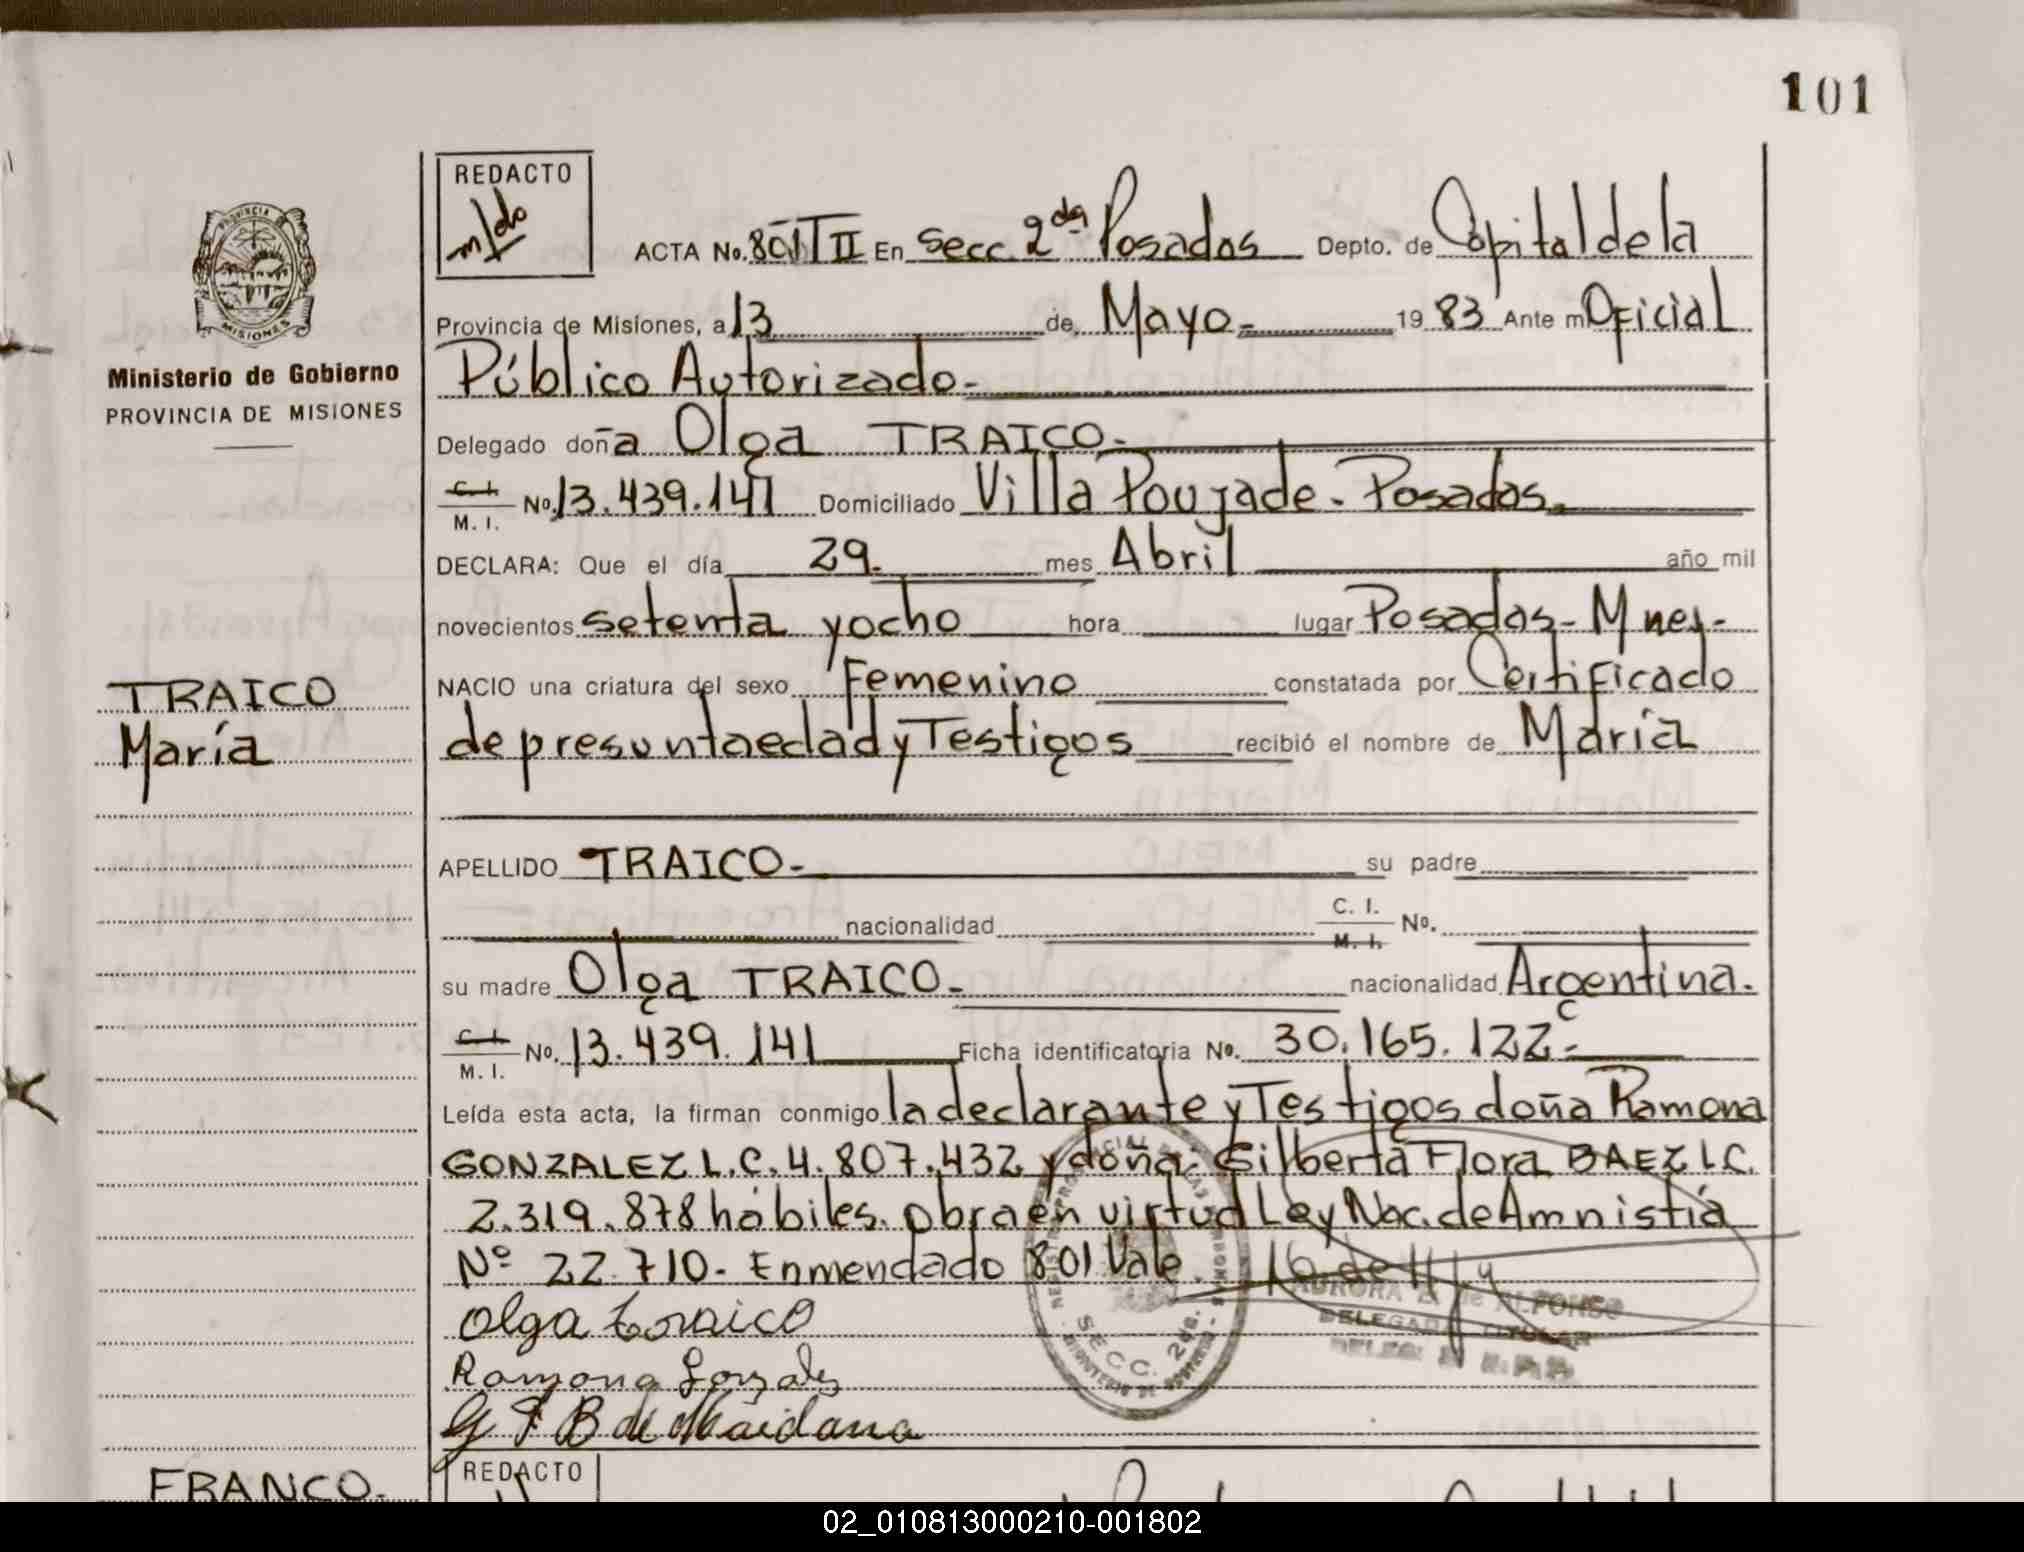 101
REDACTO
PROVINCIA DE
MISIONES
Ministerio de Gobierno
PROVINCIA DE MISIONES
ACTA No. 801 T II En Secc. 2da Posadas Depto. de Capital de la
Provincia de Misiones, a 13 de Mayo- 1983 Ante mi Oficial
Público Autorizado-
Delegado doña Olga TRAICO-
C. I. M. I. No. 13.439.141 Domiciliado Villa Poujade - Posadas.
DECLARA: Que el día 29. mes Abril año mil
novecientos setenta y ocho hora lugar Posadas- Mnes.-
NACIO una criatura del sexo Femenino constatada por Certificado
de presunta edad y Testigos recibió el nombre de María
TRAICO
María
APELLIDO TRAICO- su padre
nacionalidad C. I. M. I. No.
su madre Olga TRAICO- nacionalidad Argentina.
C. I. M. I. No. 13.439.141 Ficha identificatoria No. 30.165.122-
Leída esta acta, la firman conmigo la declarante y Testigos doña Ramona
GONZALEZ L.C. 4.807.432 y doña Gilberta Flora BAEZ L.C.
2.319.878 hábiles. Obra en virtud Ley Nac. de Amnistía
Nº 22.710- Enmendado 801 Vale.
Olga Traico
Ramona Gonzales
G F B de Maidana
SECC. 2da.
AURORA Z. de ALFONSO
DELEGADA TITULAR
FRANCO-
REDACTO
02_010813000210-001802